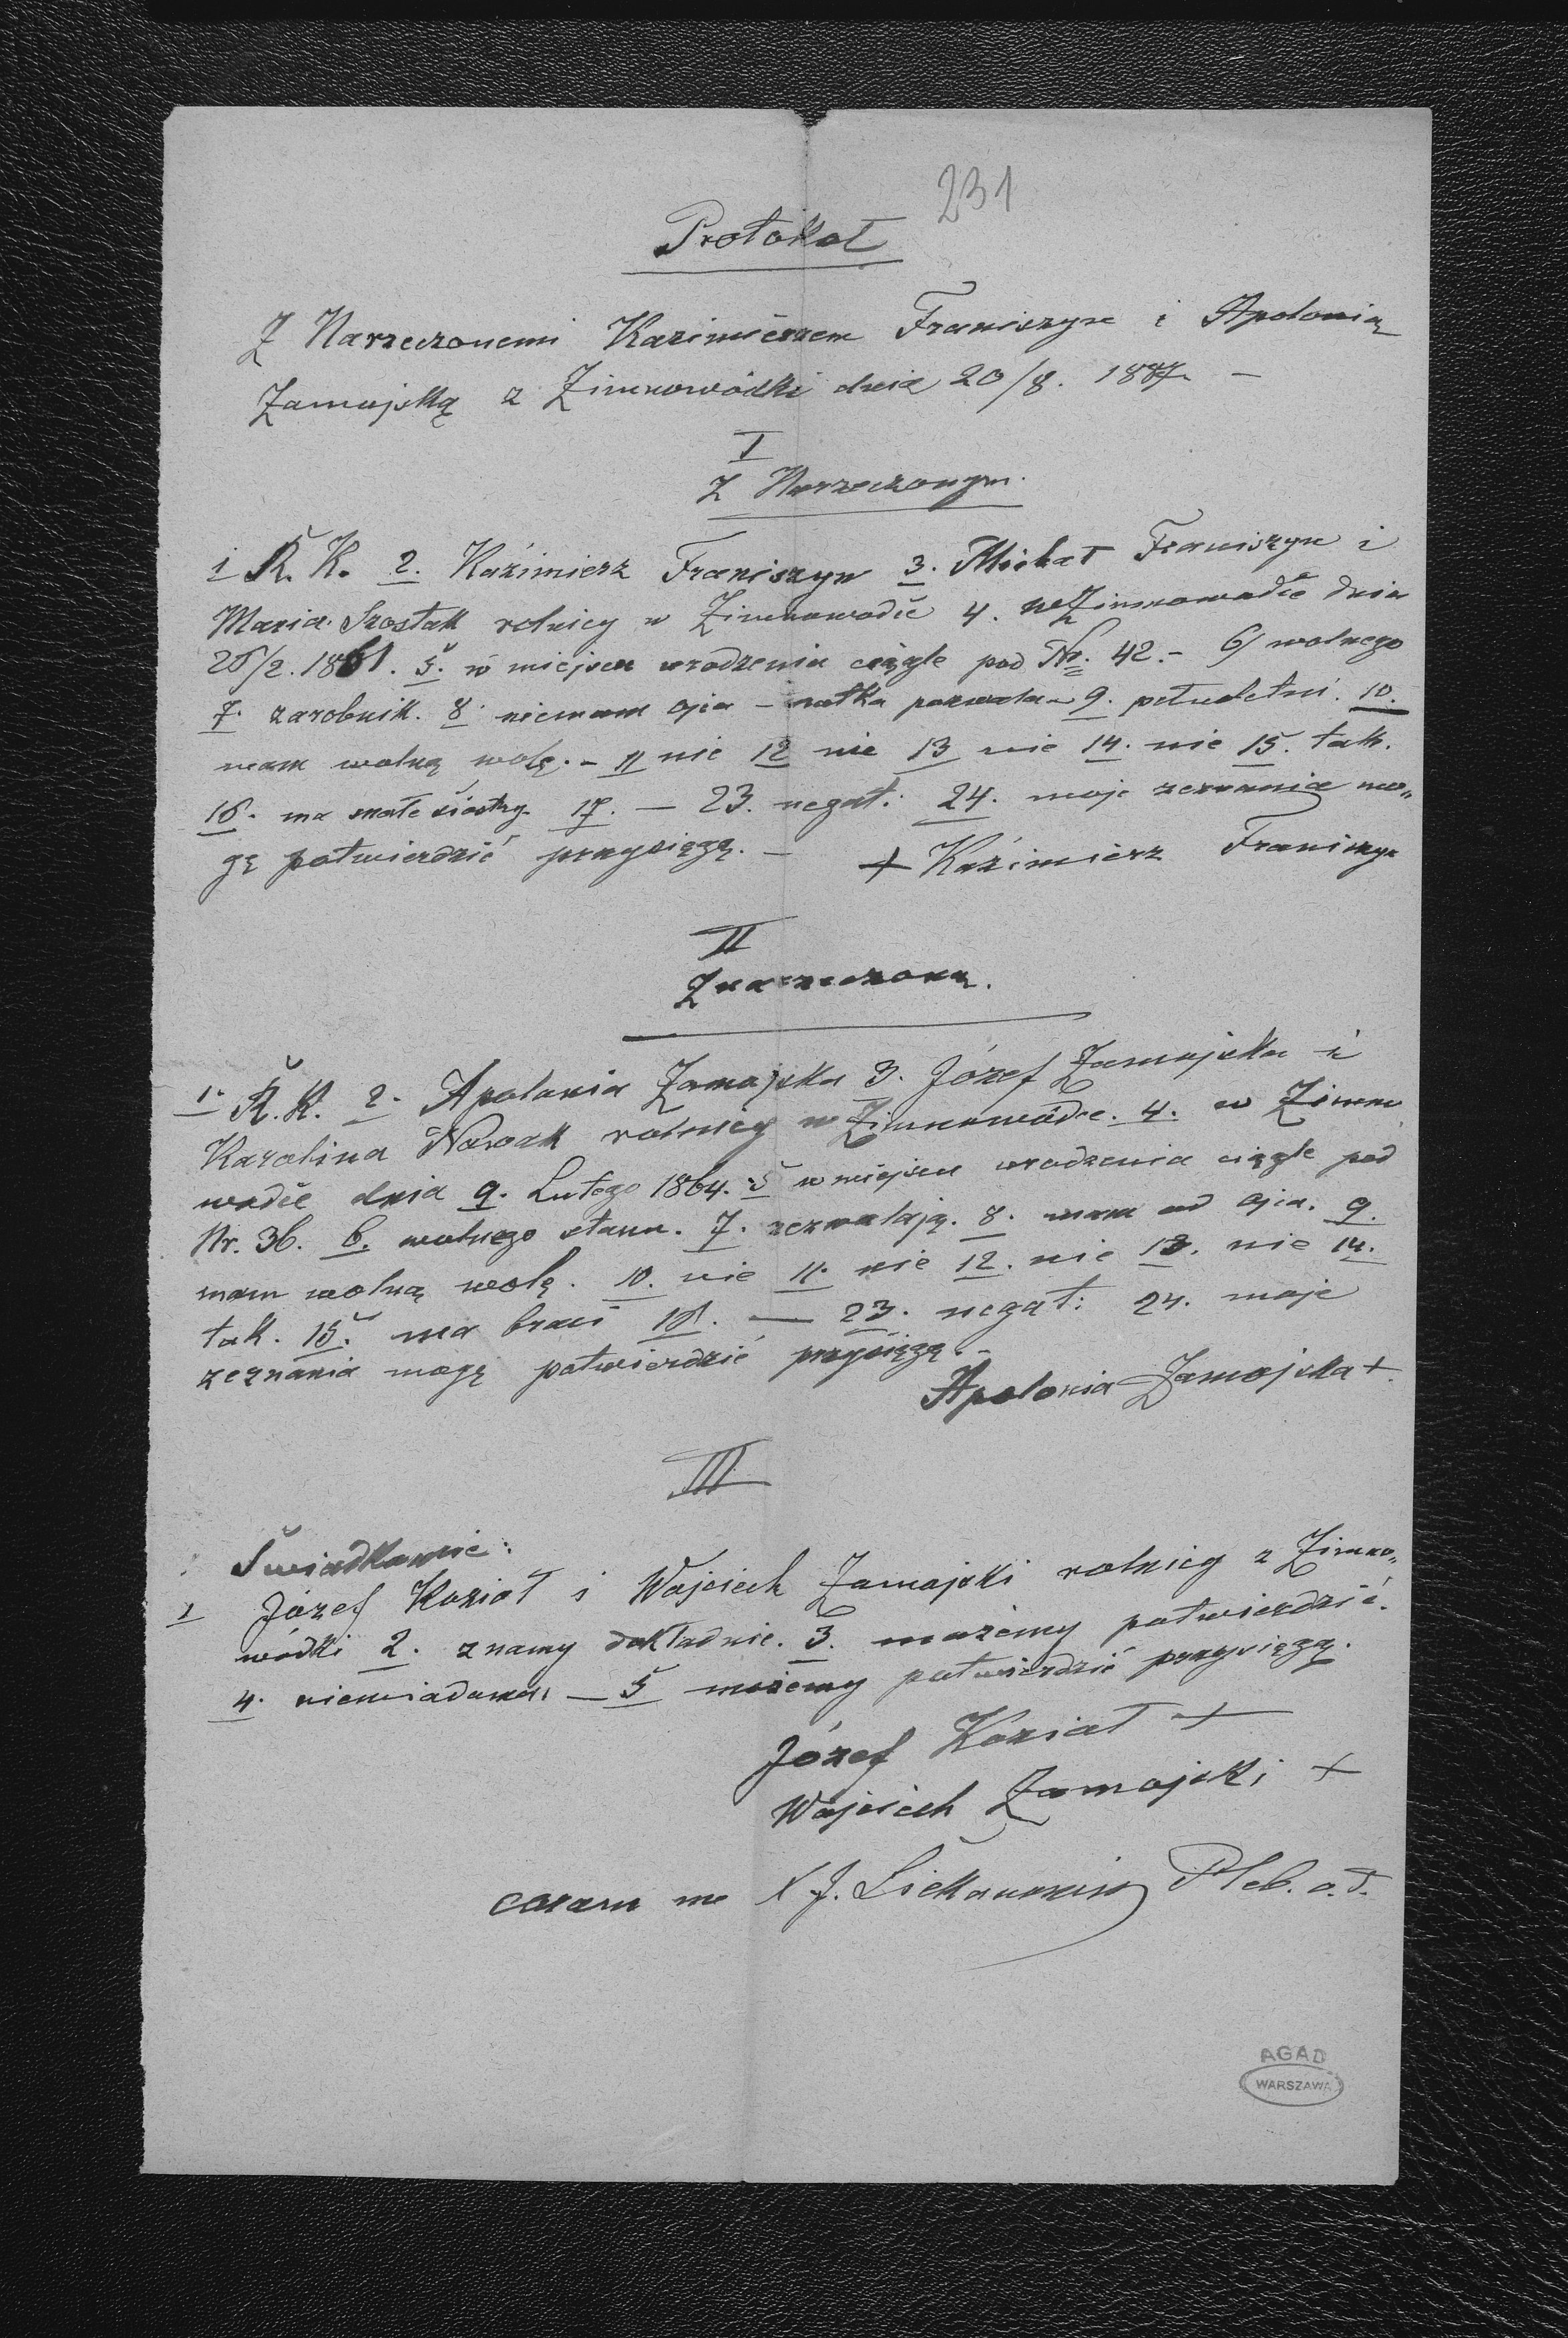 231
Protokoł
Z Narzeczonemi Kazimierzem Franiszyn i Apolonią
Zamojską z Zimnowódki dnia 20/8. 188
I
Z Narzeczonym.
1 Ř. K. 2. Kaźimierz Franiszyn 3. Michał Franiszyn i
Maria Szostak rolnicy w Zimnowodźe 4. w Zimnowodźe dnia
/2. 1861. 5. w miejscu urodzenia ciągle pod Nr. 42.- 6) wolnego
7. zarobnik. 8. niemam ojca - matka pozwala - 9. pełnoletni. 10.
mam wolną wolę. - 11 nie 12 nie 13 nie 14. nie 15. tak.
16. ma małe siostry. 17. — 23. negat: 24. moje zeznania mo„
gę potwierdzić przysięgą. — + Kaźimierz Franiszyn
II
Z narzeczoną.
1. Ř. K. 2. Apolonia Zamojska 3. Józef Zamojska i
Karolina Nowak rolnicy w Zimnowódce. 4. w Zimno
wodźe dnia 9. Lutego 1864. 5 w miejscu urodzenia ciągle pod
Nr. 36. 6. wolnego stanu. 7. zezwalają. 8. mam od ojca. 9.
mam wolną wolę. 10. nie 11. nie 12. nie 13. nie 14.
tak. 15. ma braci 16. — 23. negat: 24. moje
zeznania mogę potwierdzić przysięgą. -
Apolonia Zamojska +.
III
Świadkowie:
1 Józef Kozioł i Wojciech Zamojski rolnicy z Zimno„
wódki 2. znamy dokładnie. 3. możemy potwierdzić.
4. niewiadomo — 5 możemy potwierdzić przysięgą.
Józef Kozioł +
Wojciech Zamojski +
coram me X J. Pleb. o. ł.
AGAD
WARSZAWA